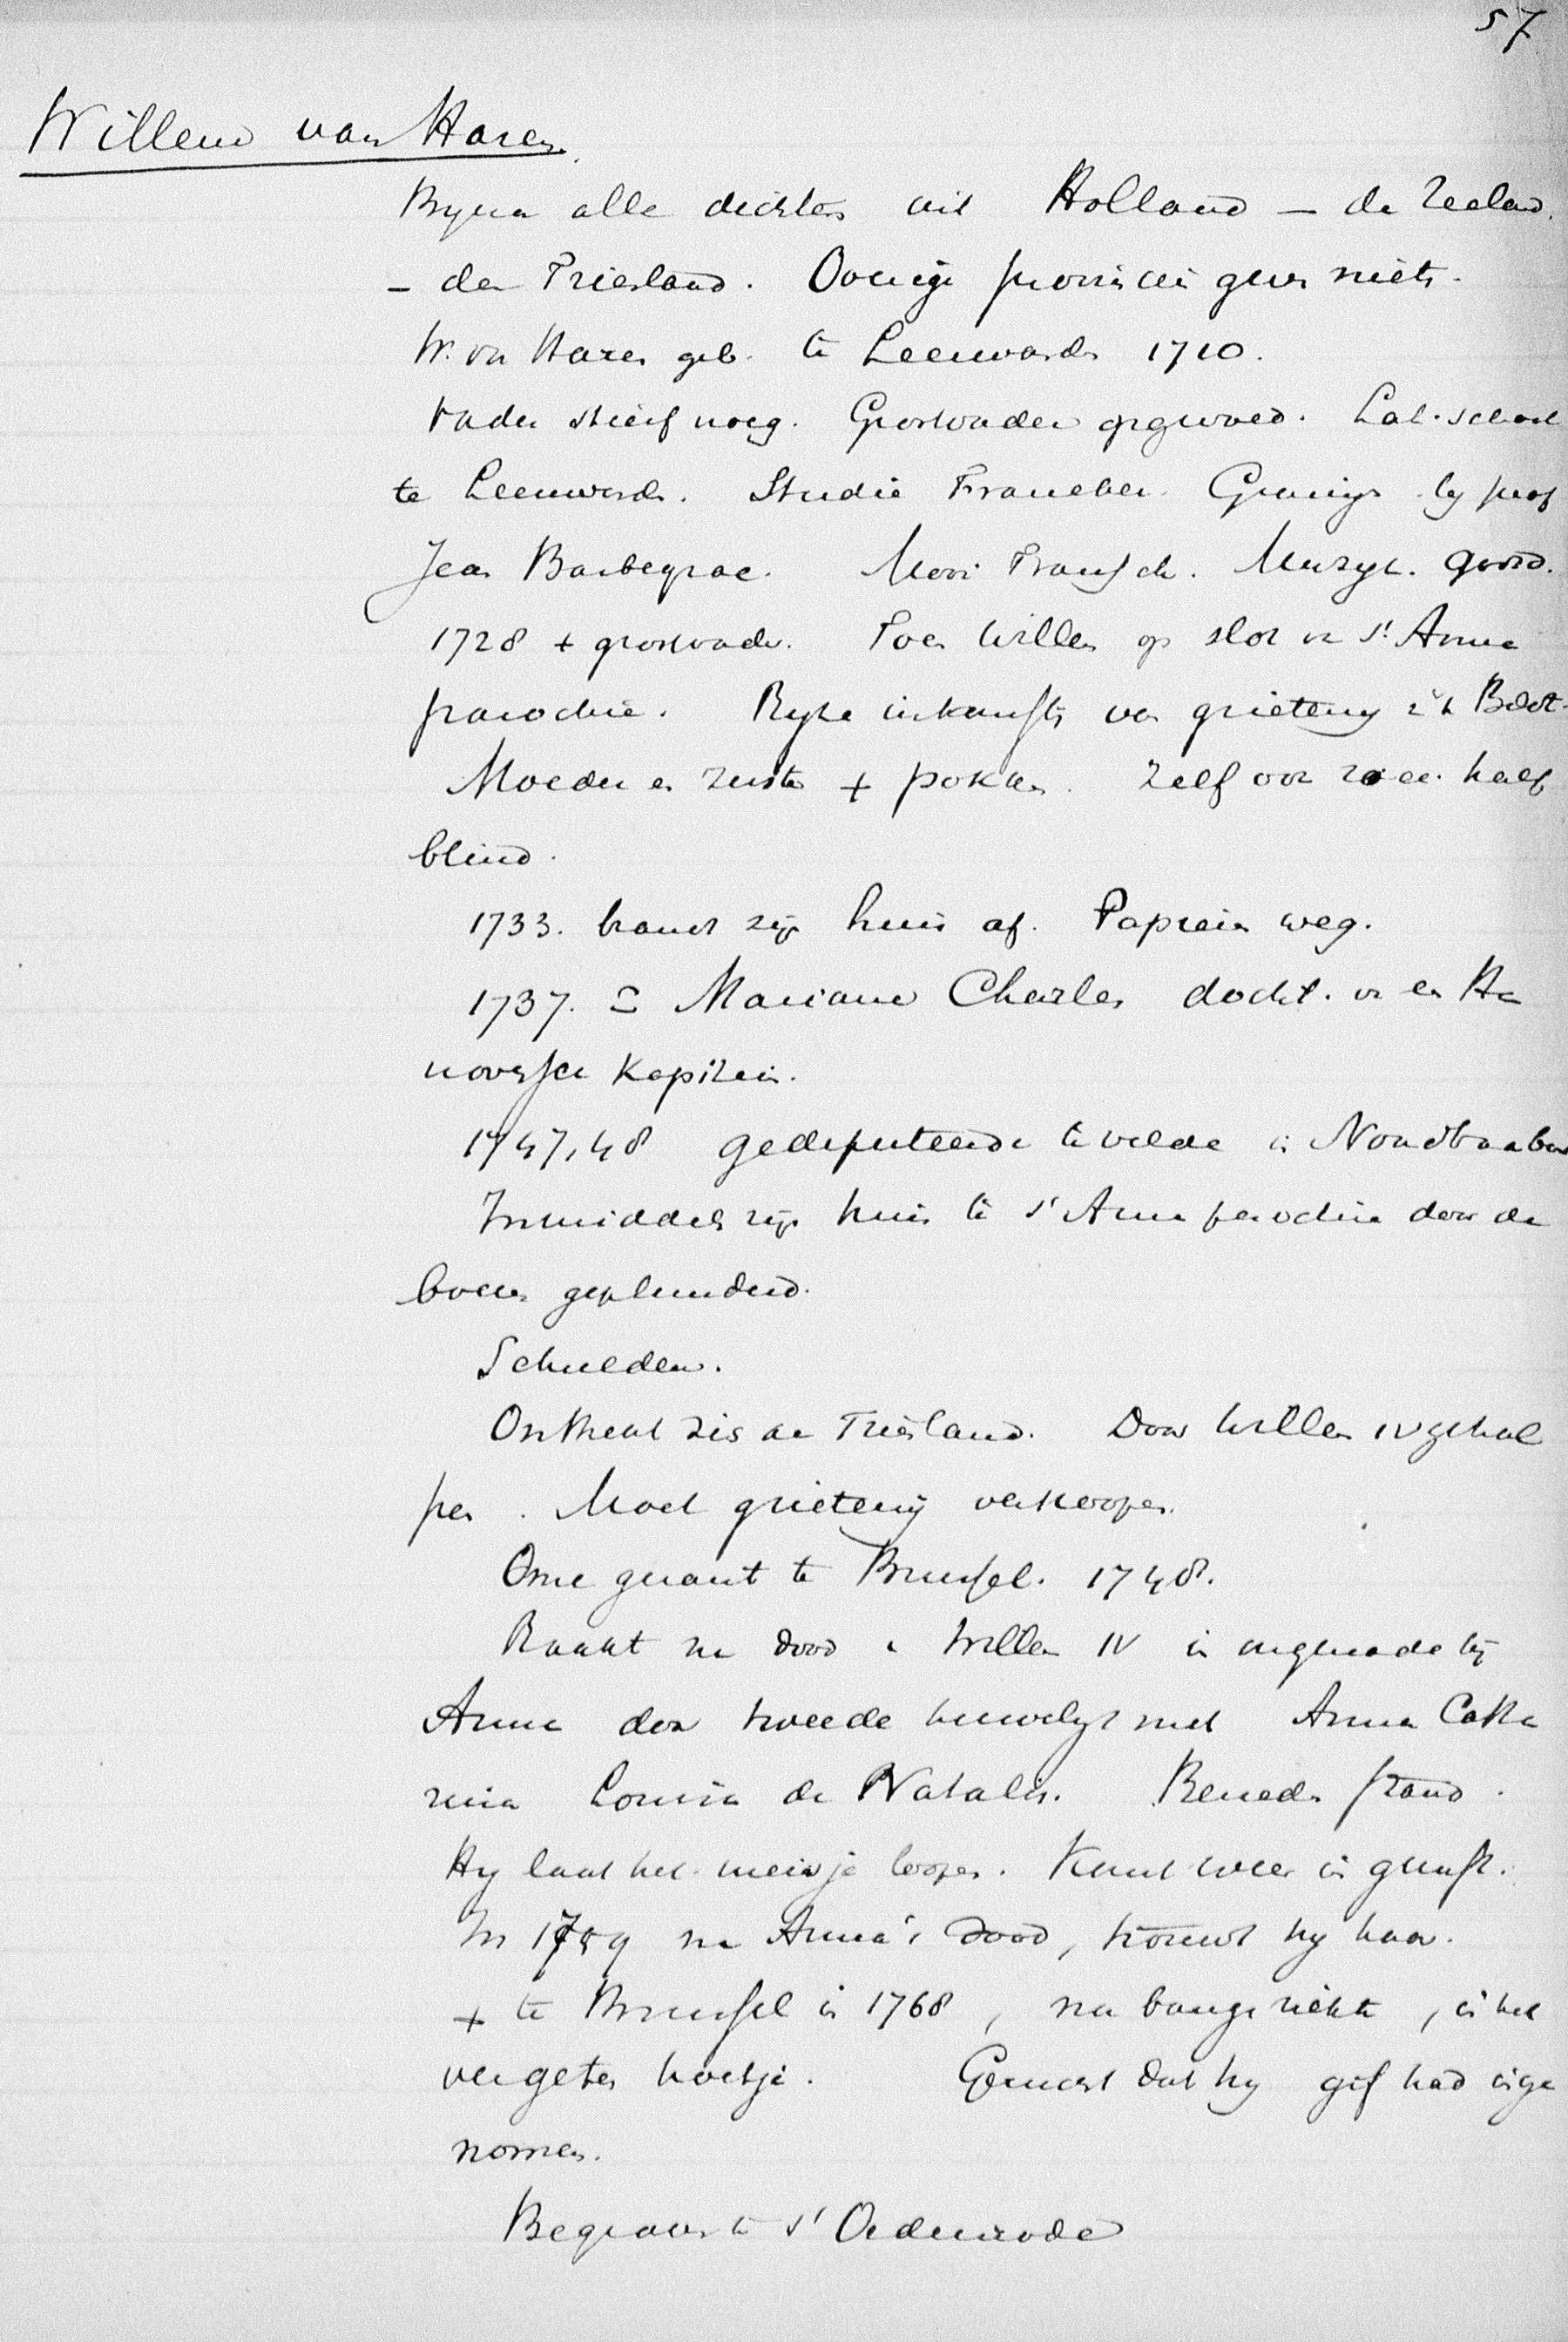 57
Willem van Haren.
Byna alle dichters uit Holland – de Zeeland.
– dan Friesland. Overige provincien geven niets.
W. van Haren geb. te Leeuwarden 1710.
Vader stierf vroeg. Grootvader opgevoed. Lat. school
te Leeuwarden. Studie Franeker. Groningen by prof
Jean Barbeyrac. Mooi Fransch. Muzyk. goed.
1728 + grootvader. Toen Willem op slot v st Anna
parochie. Ryke inkomsten van grieteny v 't Bildt.
Moeder en zuster + pokken. Zelf oor ziek. half
blind.
1733. brandt zijn huis af. Papieren weg.
1737. Mariane Charles docht. v een Ha
noversche Kapitein.
1747,48 gedeputeerde te velde in Noordbrabant
Inmiddels zijn huis te st Anna parochie door de
boeren geplunderd.
Schulden.
Ontheat zis Friesland. Door Willem IV gehol
pen. Moet grietenij verkoopen.
Ome gezant te Brussel. 1748.
Raakt na dood v Willem IV in ongenade bij
Anna door tweede huwelyk met Anna Catha
rina Louisa de Natalis. Beneden stand.
Hy laat het meisje loopen. Komt weer in gunst.
In 1759 na Anna's dood, trouwt hy haar.
+ te Brussel in 1768, na bange ziekte, in het
vergeten hoekje. Gemeend dat hy gif had inge
nomen.
Begraven te st Oedenrode